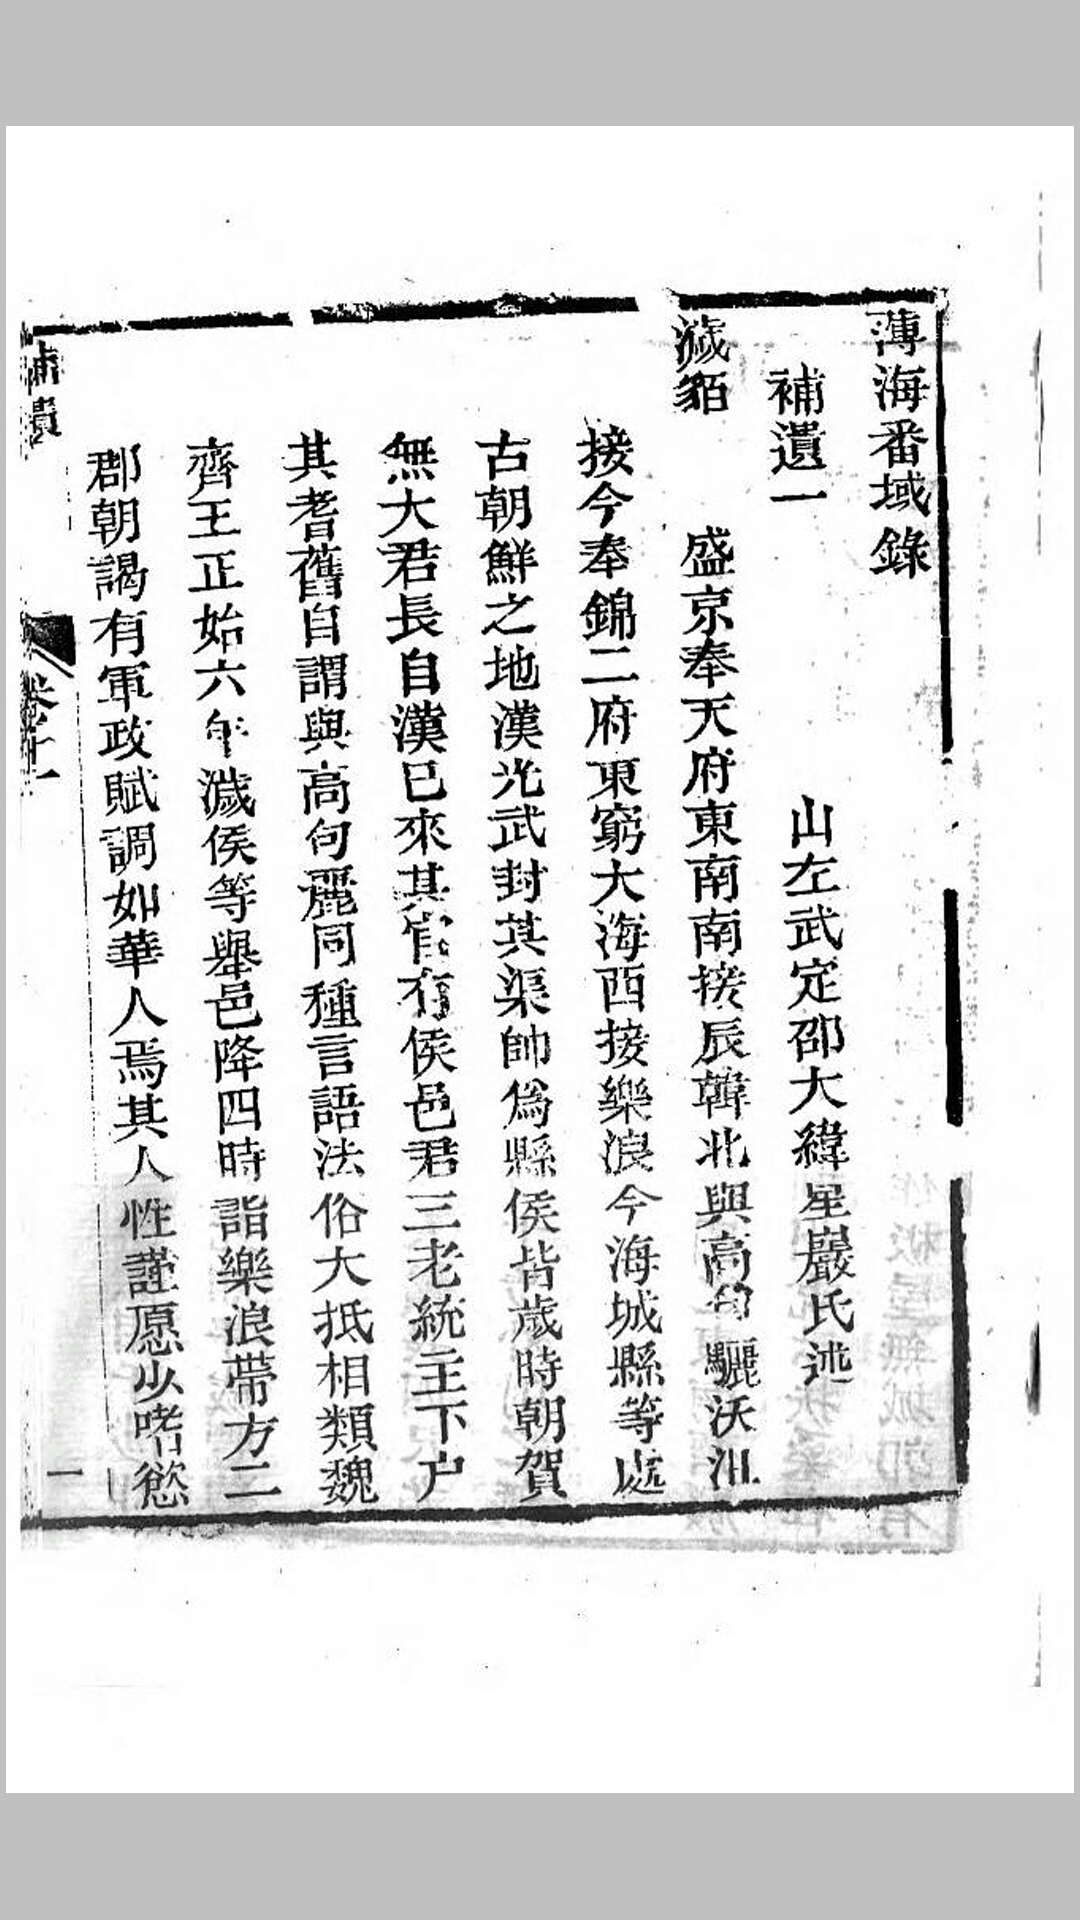 薄海番域錄
補遺一
山左武定邵大緯星巖氏述
濊貊
盛京奉天府東南南接辰韓北與高句驪沃沮
接今奉錦二府東窮大海西接樂浪今海城縣等處
古朝鮮之地漢光武封其渠帥爲縣侯皆歲時朝賀
無大君長自漢已來其官有侯邑君三老統主下户
其耆舊自謂與高句麗同種言語法俗大抵相類魏
齊王正始六年濊侯等舉邑降四時詣樂浪帶方二
郡朝謁有軍政賦調如華人焉其人性謹愿少嗜慾
補遺
卷十一
一